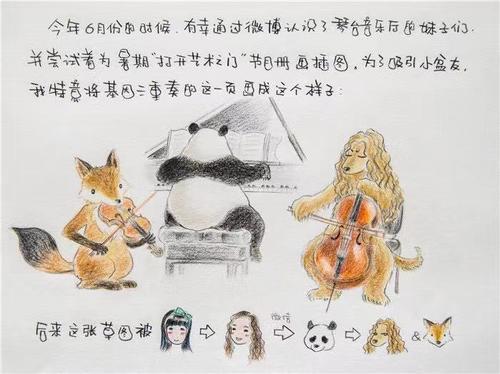 今年6月份的时候，有幸通过微博认识了琴台音乐厅的妹子们.
并尝试着为暑期"打开艺术之门"节目册画插图，为了吸引小盆友，
我特意将基图三重奏的这一页画成这个样子：
微信
后来这张草图被
&